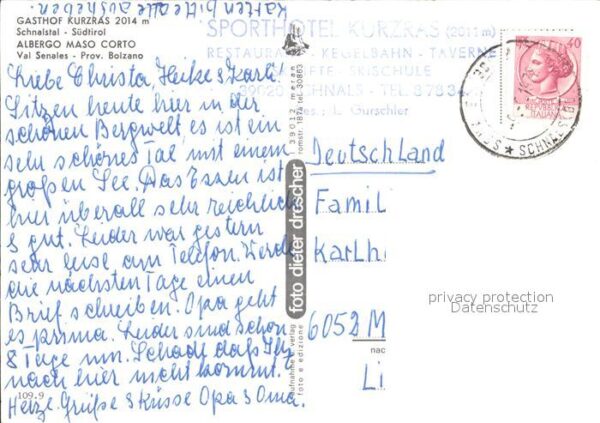 Karten bitte alle
ausheben.
GASTHOF KURZRAS 2014 m
Schnalstal - Südtirol
ALBERGO MASO CORTO
Val Senales - Prov. Bolzano
SPORTHOTEL KURZRAS (2011 m)
RESTAURANT - KEGELBAHN - TAVERNE
SKISCHULE
39020 SCHNALS - TEL. 8783
Bes.: L. Gurschler
40
REPUBBLICA
ITALIANA
SCHNAL
Liebe Christa, Heike & Karli!
Sitzen heute hier in der
schönen Bergwelt, es ist ein
sehr schönes Tal mit einem
großen See. Das Essen ist
hier überall sehr reichlich
& gut. Leider war gestern
sehr leise am Telefon. Werde
die nächsten Tage einen
Brief schreiben. Opa geht
es prima. Leider sind schon
8 Tage um. Schade daß Ihr
nach hier nicht kommt.
Herzl. Grüße & Küsse Opa & Oma.
109.9
foto dieter drescher
39012 meran
romstr. 187a tel. 30863
aufnahme u. verlag
foto e edizione
Deutschland
Famil
Karlh
6052 M
nac
Li
privacy protection
Datenschutz